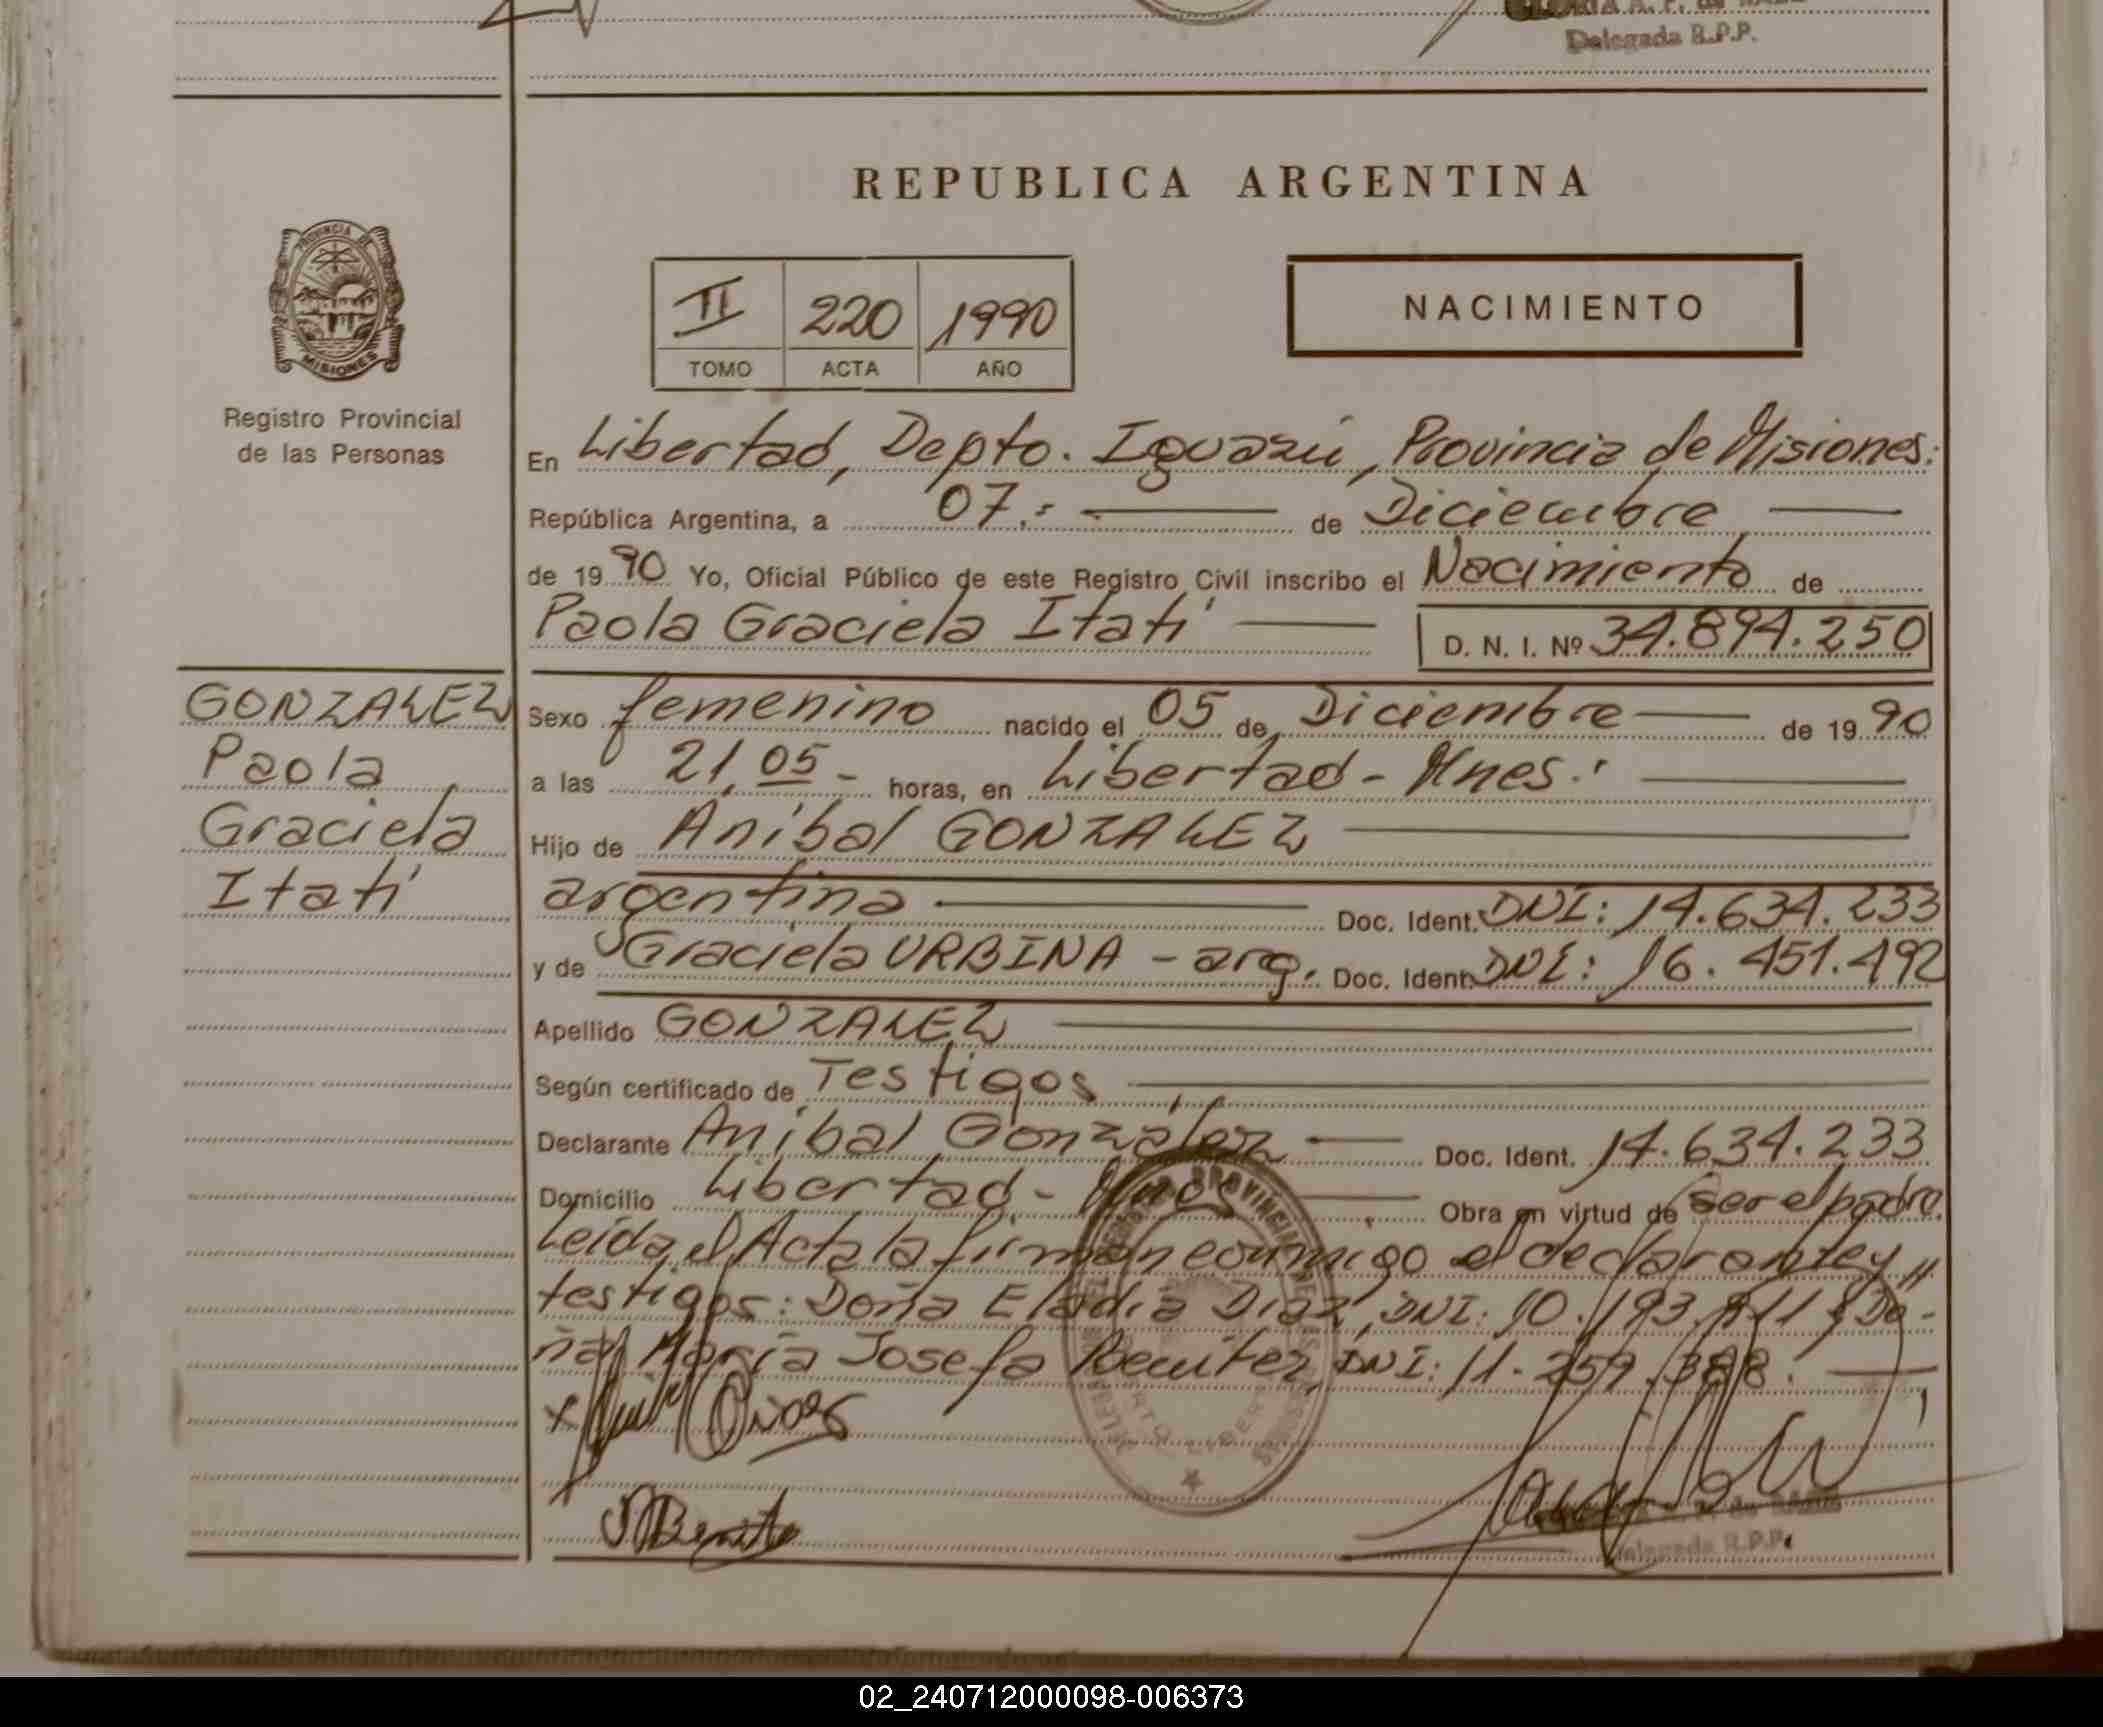 Delegada R.P.P.
REPUBLICA ARGENTINA
PROVINCIA DE
MISIONES
Registro Provincial
de las Personas
II 220 1990
TOMO ACTA AÑO
NACIMIENTO
En Libertad, Depto. Iguazú, Provincia de Misiones.
República Argentina, a 07.- de Diciembre
de 1990 Yo, Oficial Público de este Registro Civil inscribo el Nacimiento de
Paola Graciela Itatí D. N. I. Nº 34.894.250
GONZALEZ
Paola
Graciela
Itatí
Sexo femenino nacido el 05 de Diciembre de 1990
a las 21,05 - horas, en Libertad - Mnes.
Hijo de Anibal GONZALEZ
argentina Doc. Ident. DNI: 14.634.233
y de Graciela URBINA - arg. Doc. Ident. DNI: 16.451.492
Apellido GONZALEZ
Según certificado de Testigos
Declarante Anibal Gonzalez Doc. Ident. 14.634.233
Domicilio Libertad - Obra en virtud de ser el padre.
Leída el Acta la firman conmigo el declarante y
testigos: Doña Eladia Diaz, DNI: 10.193. y Do-
ña María Josefa Benitez, DNI: 11.259.388.
Delegada R.P.P.
02_240712000098-006373